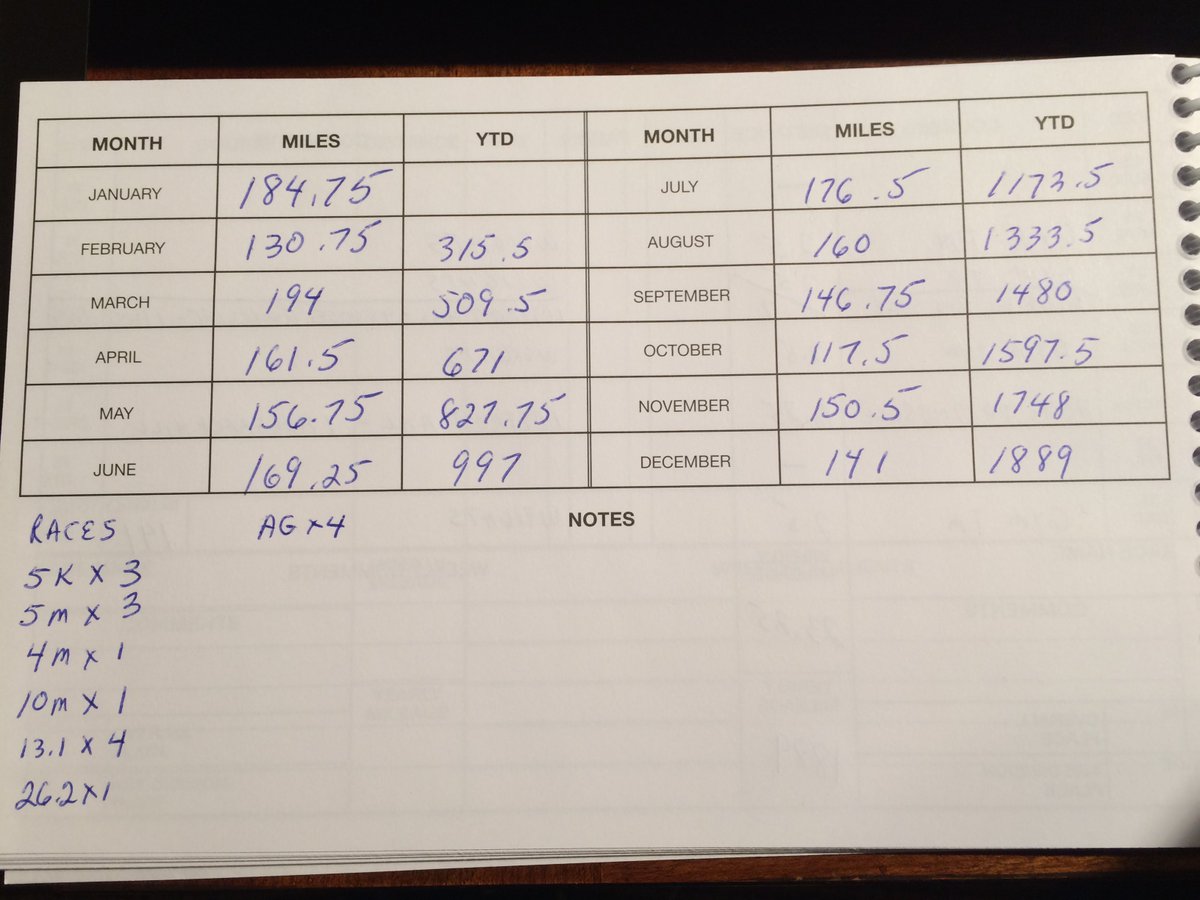 MONTH MILES YTD MONTH MILES YTD
JANUARY 184.75 JULY 176.5 1173.5
FEBRUARY 130.75 315.5 AUGUST 160 1333.5
MARCH 194 509.5 SEPTEMBER 146.75 1480
APRIL 161.5 671 OCTOBER 117.5 1597.5
MAY 156.75 827.75 NOVEMBER 150.5 1748
JUNE 169.25 997 DECEMBER 141 1889
NOTES
RACES AG x 4
5K x 3
5m x 3
4m x 1
10m x 1
13.1 x 4
26.2 x 1